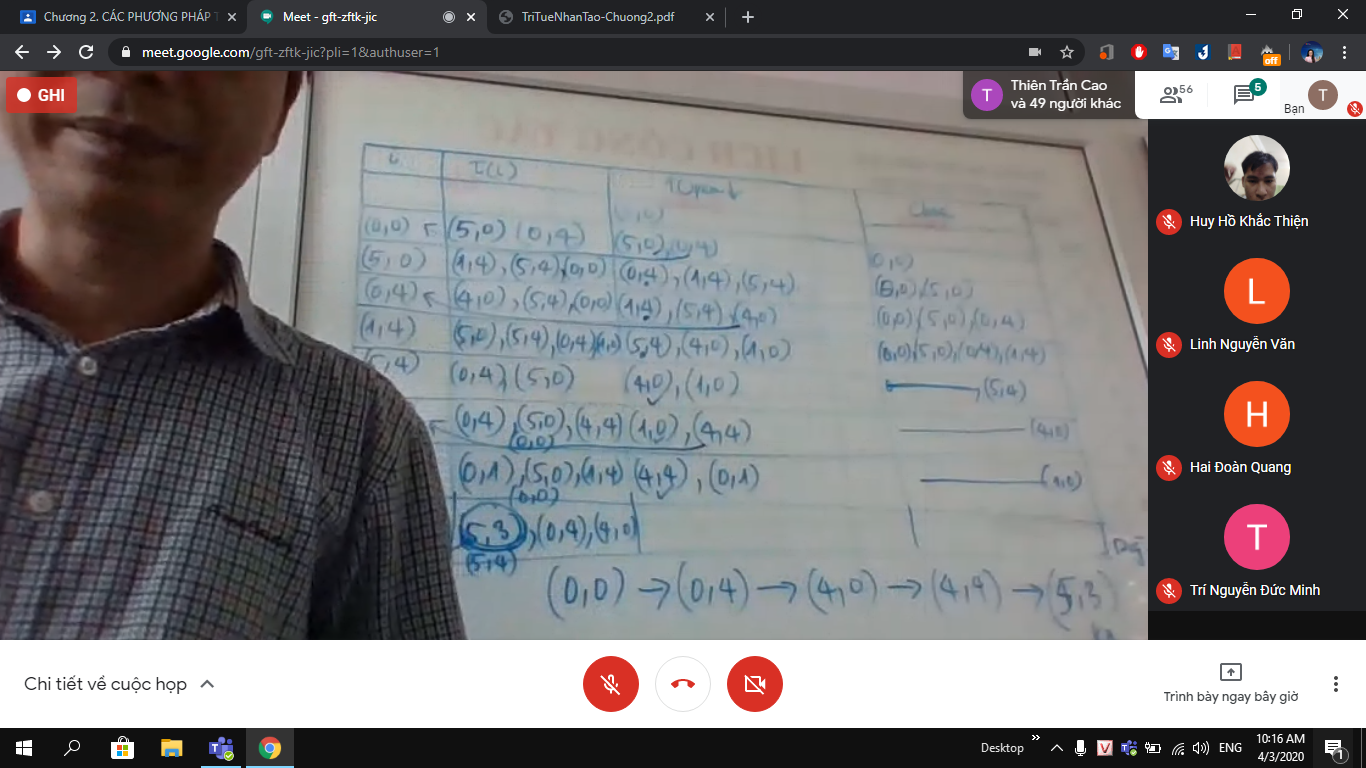 Chương 2. CÁC PHƯƠNG PHÁP T
Meet - gft-zftk-jic
TriTueNhanTao-Chuong2.pdf
meet.google.com/gft-zftk-jic?pli=1&authuser=1
off
GHI
T
Thiên Trần Cao
và 49 người khác
56
5
Bạn
T
LỊCH CÔNG TÁC
(0,0) (5,0) (0,4) (5,0), (0,4)
(5,0) (1,4), (5,4), (0,0) (0,4), (1,4), (5,4)
(0,4) (4,0), (5,4), (0,0) (1,4), (5,4), (4,0) (0,0), (5,0), (0,4)
(1,4) (5,0), (5,4), (0,4), (1,0) (5,4), (4,0), (1,0) (0,0), (5,0), (0,4), (1,4)
(0,4), (5,0) (4,0), (1,0) (5,4)
(0,4), (5,0), (4,4) (1,0), (4,4) (4,0)
(0,0)
(0,1), (5,0), (1,4) (4,4), (0,1) (1,0)
(0,0)
(5,3), (0,4), (4,0)
(5,4)
(0,0) → (0,4) → (4,0) → (4,4) → (5,3)
Huy Hồ Khắc Thiện
L
Linh Nguyễn Văn
H
Hai Đoàn Quang
T
Trí Nguyễn Đức Minh
Chi tiết về cuộc họp
Trình bày ngay bây giờ
Desktop
ENG
10:16 AM
4/3/2020
1